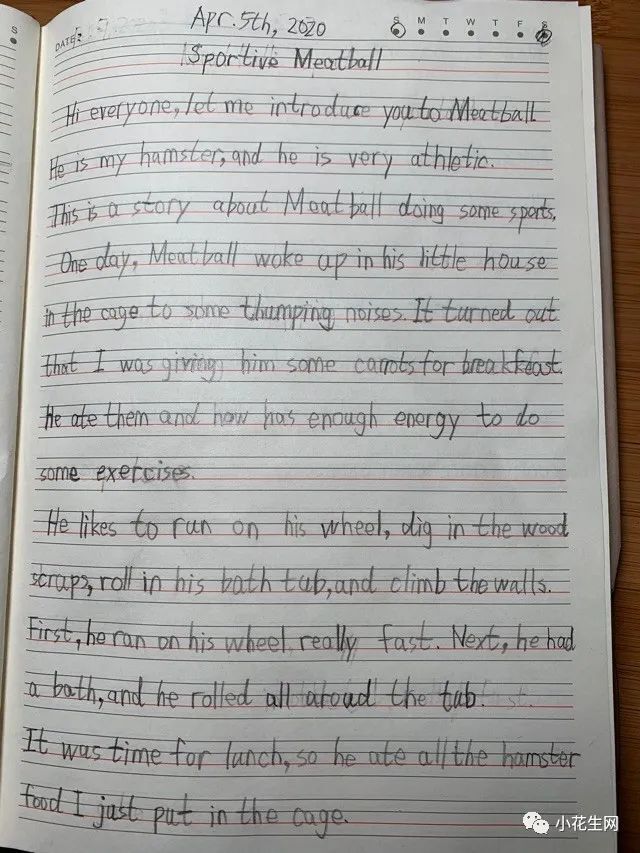 Apr. 5th, 2020
S M T W T F S
DATE:
Sportive Meatball
Hi everyone, let me introduce you to Meatball
He is my hamster, and he is very athletic.
This is a story about Meatball doing some sports.
One day, Meatball woke up in his little house
in the cage to some thumping noises. It turned out
that I was giving him some carrots for breakfeast.
He ate them and now has enough energy to do
some exercises.
He likes to run on his wheel, dig in the wood
scraps, roll in his bath tub, and climb the walls.
First, he ran on his wheel really fast. Next, he had
a bath, and he rolled all aroud the tub.
It was time for lunch, so he ate all the hamster
food I just put in the cage.
小花生网